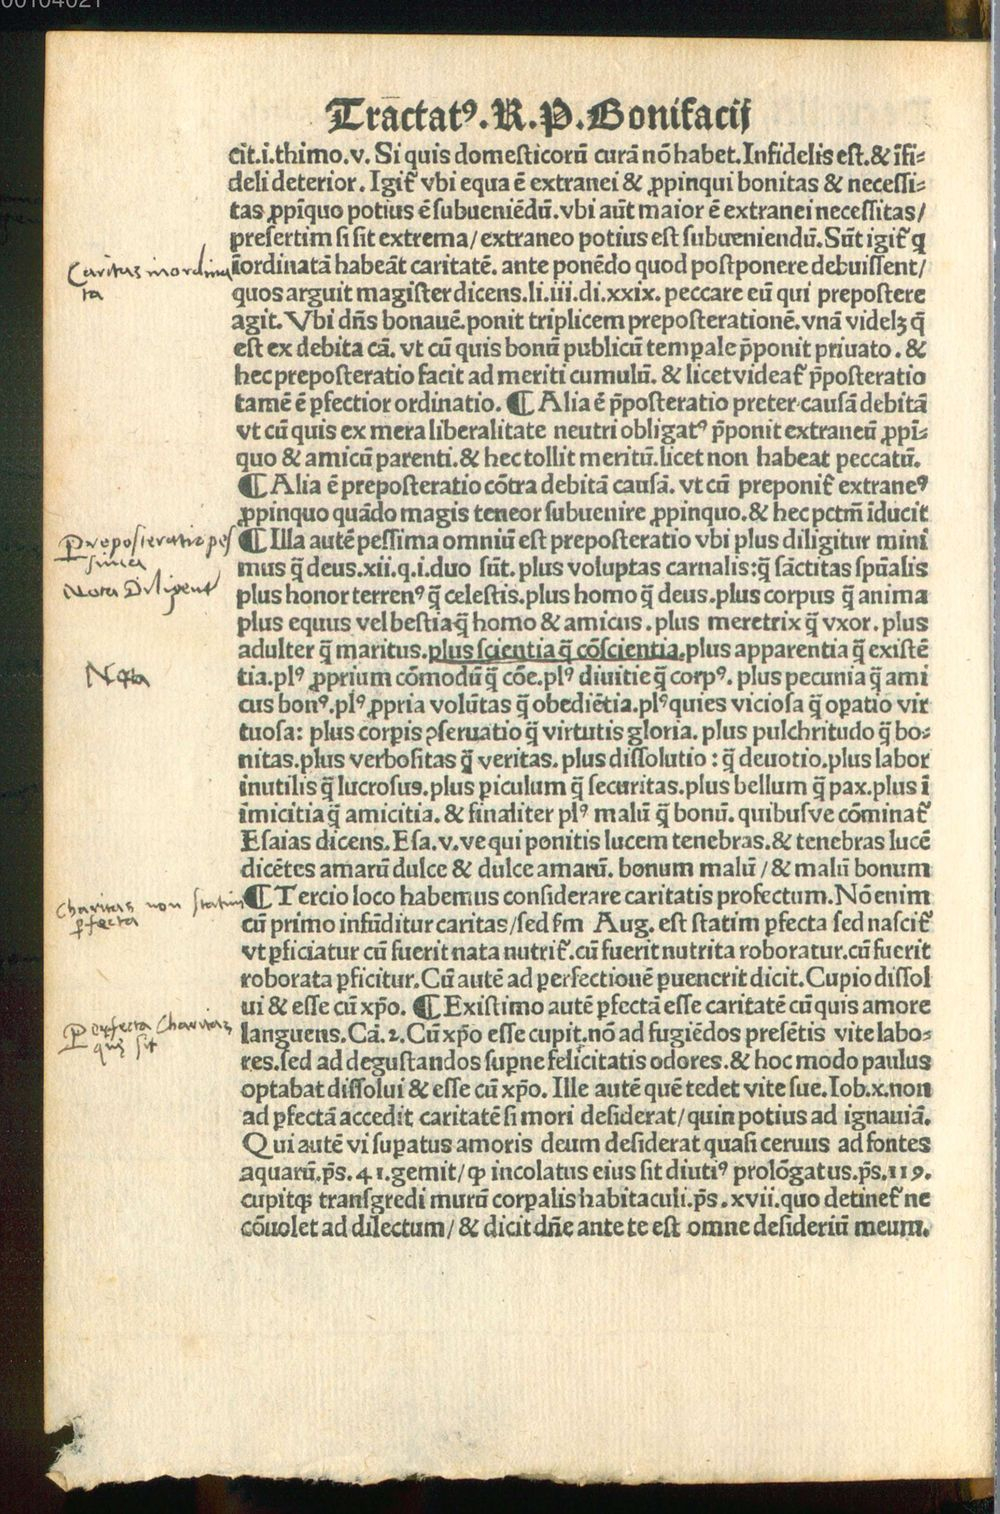 00104021
Tractatꝰ.R.P.Bonifacij
cit.i.thimo.v. Si quis domesticorū curā nō habet.Infidelis est.& īfi⸗
deli deterior. Igit᷑ vbi equa ē extranei & ꝓpinqui bonitas & necessi⸗
tas ꝓpīquo potius ē subueniēdū.vbi aūt maior ē extranei necessitas/
presertim si sit extrema/ extraneo potius est subueniendū.Sūt igit᷑ q
īordinatā habeāt caritatē. ante ponēdo quod postponere debuissent/
quos arguit magister dicens.li.iii.di.xxix. peccare eū qui prepostere
agit. Vbi dn̄s bonauē.ponit triplicem preposterationē.vnā videlꝫ q̄
est ex debita cā. vt cū quis bonū publicū tempale p̄ponit priuato. &
hec preposteratio facit ad meriti cumulū. & licet videat᷑ p̄posteratio
tamē ē ꝑfectior ordinatio. ¶ Alia ē p̄posteratio preter causā debitā
vt cū quis ex mera liberalitate neutri obligatꝰ p̄ponit extraneū ꝓpī⸗
quo & amicū parenti.& hec tollit meritū.licet non habeat peccatū.
¶ Alia ē preposteratio cōtra debitā causā. vt cū preponit᷑ extraneꝰ
ꝓpinquo quādo magis teneor subuenire ꝓpinquo.& hec pctm̄ īducit
¶ Illa autē pessima omniū est preposteratio vbi plus diligitur mini
mus q̄ deus.xii.q.i.duo sūt. plus voluptas carnalis:q̄ sāctitas spūalis
plus honor terrenꝰ q̄ celestis.plus homo q̄ deus.plus corpus q̄ anima
plus equus vel bestia q̄ homo & amicus. plus meretrix q̄ vxor. plus
adulter q̄ maritus.plus scientia q̄ cōscientia.plus apparentia q̄ existē
tia.plꝰ ꝓprium cōmodū q̄ cōe.plꝰ diuitie q̄ corpꝰ. plus pecunia q̄ ami
cus bonꝰ.plꝰ ꝓpria volūtas q̄ obediētia.plꝰ quies viciosa q̄ oꝑatio vir
tuosa: plus corꝑis ꝯseruatio q̄ virtutis gloria. plus pulchritudo q̄ bo⸗
nitas.plus verbositas q̄ veritas. plus dissolutio : q̄ deuotio.plus labor
inutilis q̄ lucrosus.plus ꝑiculum q̄ securitas.plus bellum q̄ pax.plus ī
īmicitia q̄ amicitia. & finaliter plꝰ malū q̄ bonū. quibusve cōminat᷑
Esaias dicens. Esa.v.ve qui ponitis lucem tenebras.& tenebras lucē
dicētes amarū dulce & dulce amarū. bonum malū / & malū bonum
¶ Tercio loco habemus considerare caritatis profectum. Nō enim
cū primo infūditur caritas/sed s̄m Aug. est statim ꝑfecta sed nascit᷑
vt ꝑficiatur cū fuerit nata nutrit᷑.cū fuerit nutrita roboratur.cū fuerit
roborata ꝑficitur. Cū autē ad perfectionē ꝑuenerit dicit. Cupio dissol
ui & esse cū xp̄o. ¶ Existimo autē ꝑfectā esse caritatē cū quis amore
languens. Cā. 2. Cū xp̄o esse cupit.nō ad fugiēdos presētis vite labo⸗
res.sed ad degustandos suꝑne felicitatis odores.& hoc modo paulus
optabat dissolui & esse cū xp̄o. Ille autē quē tedet vite sue. Iob.x.non
ad ꝑfectā accedit caritatē si mori desiderat/ quin potius ad ignauiā.
Qui autē vi suꝑatus amoris deum desiderat quasi ceruus ad fontes
aquarū.ps̄. 41.gemit/ ꝙ incolatus eius sit diutiꝰ prolōgatus.ps̄.119.
cupitqꝫ transgredi murū corꝑalis habitaculi.ps̄. xvii.quo detinet᷑ ne
cōuolet ad dilectum / & dicit dn̄e ante te est omne desideriū meum.
Caritas inordina
ta
Preposteratio pes
sima
Nota Diligent
Nota
Charitas non statim
ꝑfecta
Perfecta Charitas
quę sit